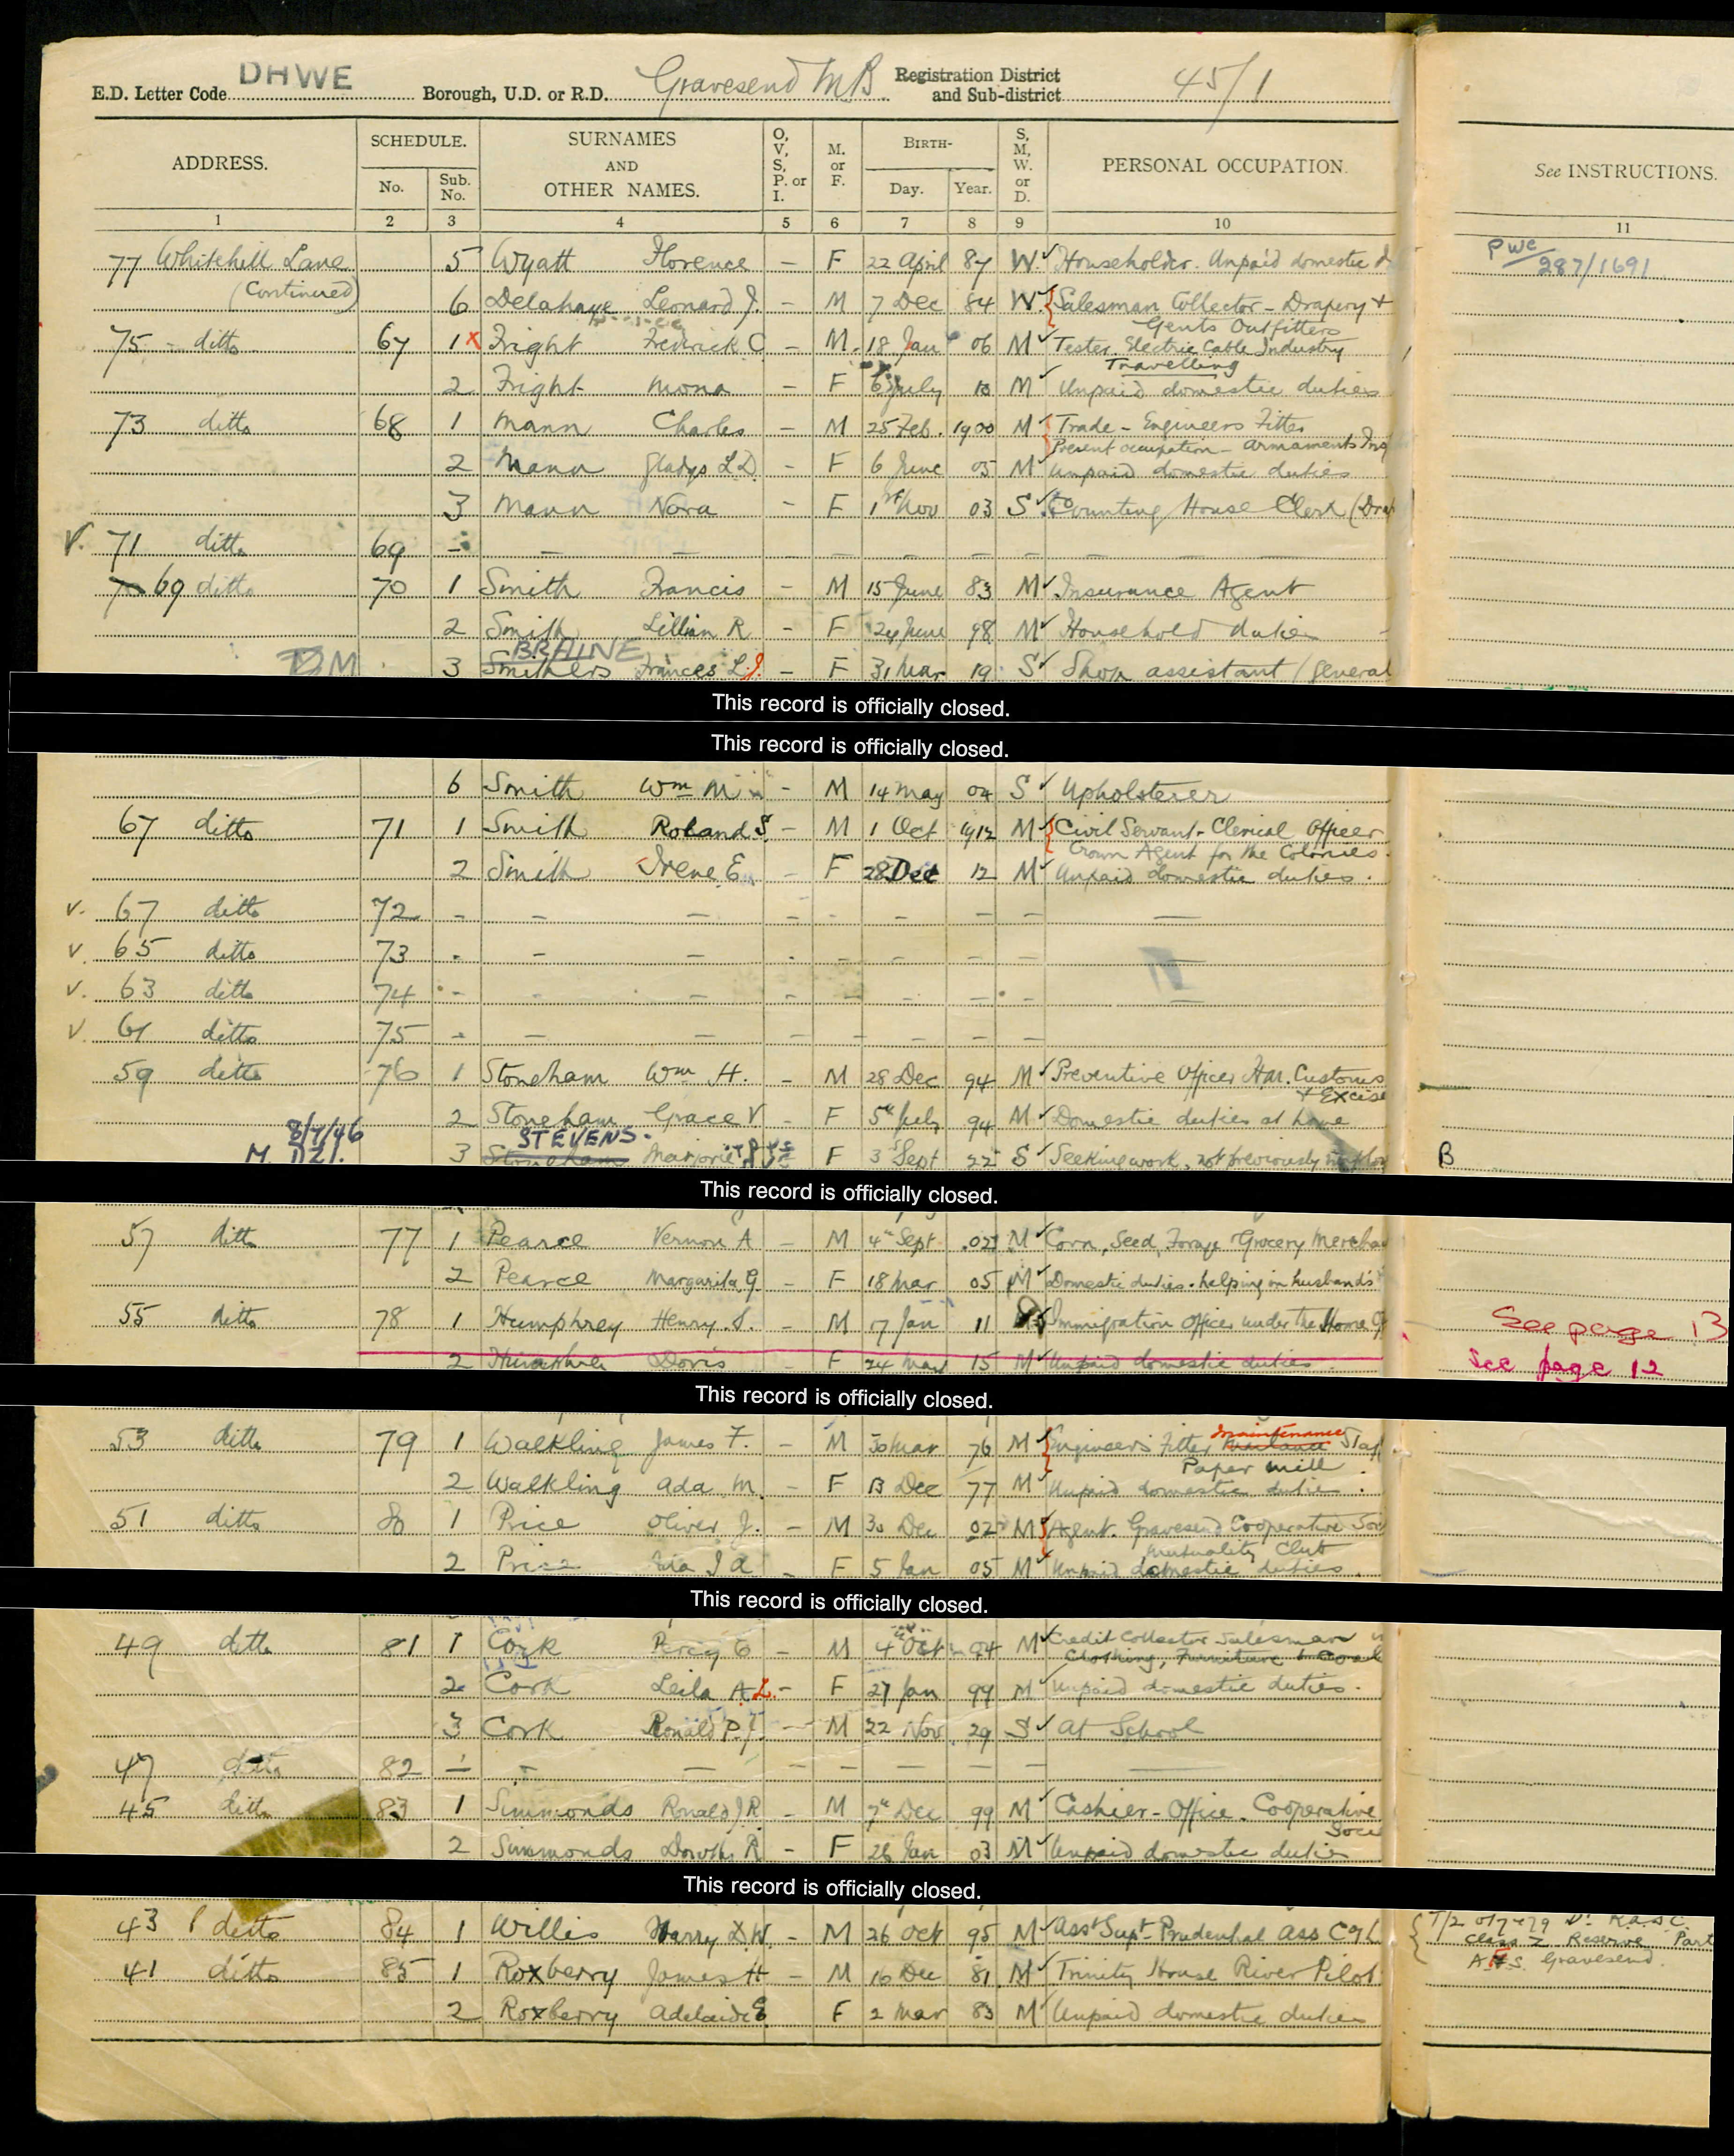 E.D. Letter Code DHWE Borough, U.D. or R.D. Gravesend M.B. Registration District and Sub-district 45/1
ADDRESS. SCHEDULE. No. Sub. No. SURNAMES AND OTHER NAMES. O, V, S, P. or I. M. or F. BIRTH- Day. Year. S, M, W. or D. PERSONAL OCCUPATION. See INSTRUCTIONS.
1 2 3 4 5 6 7 8 9 10 11
77 Whitehill Lane 5 Wyatt Florence – F 22 April 87 W. Householder. Unpaid domestic d PWC 287/1691
(Continued) 6 Delahaye Leonard J. – M 7 Dec 84 W. Salesman Collector – Drapery +
Gents Outfitters
75 – ditto 67 1 X Fright Frederick C – M. 18 Jan 06 M Tester Electric Cable Industry
Travelling
2 Fright Mona – F 6 July 10 M Unpaid domestic duties
73 ditto 68 1 Mann Charles – M 25 Feb. 1900 M Trade – Engineers Fitter
Present occupation – Armaments Ins
2 Mann Gladys L D. – F 6 June 05 M Unpaid domestic duties
3 Mann Nora – F 1st Nov 03 S Counting House Clerk (Drap
V. 71 ditto 69 – – – – – – – – – –
69 ditto 70 1 Smith Francis – M 15 June 83 M Insurance Agent
2 Smith Lillian R – F 24 June 98 M Household duties –
BRAUNE
3 Smithers Frances L.J. – F 31 Mar 19 S Shop assistant (general
This record is officially closed.
This record is officially closed.
6 Smith Wm M – M 14 May 04 S Upholsterer
67 ditto 71 1 Smith Roland S. – M 1 Oct 1912 M Civil Servant – Clerical Officer
Crown Agent for the Colonies.
2 Smith Irene E. – F 28 Dec 12 M Unpaid domestic duties.
v. 67 ditto 72 – – – – – – – – –
v. 65 ditto 73 – – – – – – – – –
v. 63 ditto 74 – – – – – – – – –
v. 61 ditto 75 – – – – – – – –
59 ditto 76 1 Stoneham Wm H. – M 28 Dec 94 M Preventive Officer H.M. Customs
+ Excise
2 Stoneham Grace V – F 5th July 94 M Domestic duties at home
8/7/46 STEVENS.
M. DZL. 3 Stoneham Marjorie F 3 Sept 22 S Seeking work, not previously employ B
This record is officially closed.
57 ditto 77 1 Pearce Vernon A – M 4th Sept .02 M Corn, Seed, Forage Grocery Mercha
2 Pearce Margarita G. – F 18 Mar 05 M Domestic duties. helping in husband's
55 ditto 78 1 Humphrey Henry. S. – M 17 Jan 11 Immigration Officer under the Home O See page 13
2 Humphrey Doris – F 24 May 15 M Unpaid domestic duties. See page 12
This record is officially closed.
53 ditto 79 1 Walkling James F. – M 30 Mar 76 M Engineers Fitter maintenance Staf
Paper mill
2 Walkling Ada M. – F 13 Dec 77 M Unpaid domestic duties.
51 ditto 80 1 Price Oliver J. – M 30 Dec 02 M Agent. Gravesend Cooperative Soc
Mutuality Club
2 Price I A – F 5 Jan 05 M Unpaid domestic duties.
This record is officially closed.
49 ditto 81 1 Cork Percy E – M 4 Oct 94 M Credit Collector Salesman
Clothing, Furniture & Coal
2 Cork Leila A L. – F 27 Jan 99 M Unpaid domestic duties.
3 Cork Ronald P. J. – M 22 Nov 29 S At School
47 ditto 82 – – – – – – – – –
45 ditto 83 1 Simmonds Ronald J R – M 7th Dec 99 M Cashier – Office. Cooperative
Soci
2 Simmonds Dorothy R – F 28 Jan 03 M Unpaid domestic duties
This record is officially closed.
43 ditto 84 1 Willis Harry D.W. – M 26 Oct 95 M Asst Supt Prudential Ass Co L R.A.S.C.
Class Z Reserve Part
41 ditto 85 1 Roxberry James H – M 16 Dec 81 M Trinity House River Pilot A.F.S. Gravesend.
2 Roxberry Adelaide E. F 2 Mar 83 M Unpaid domestic duties